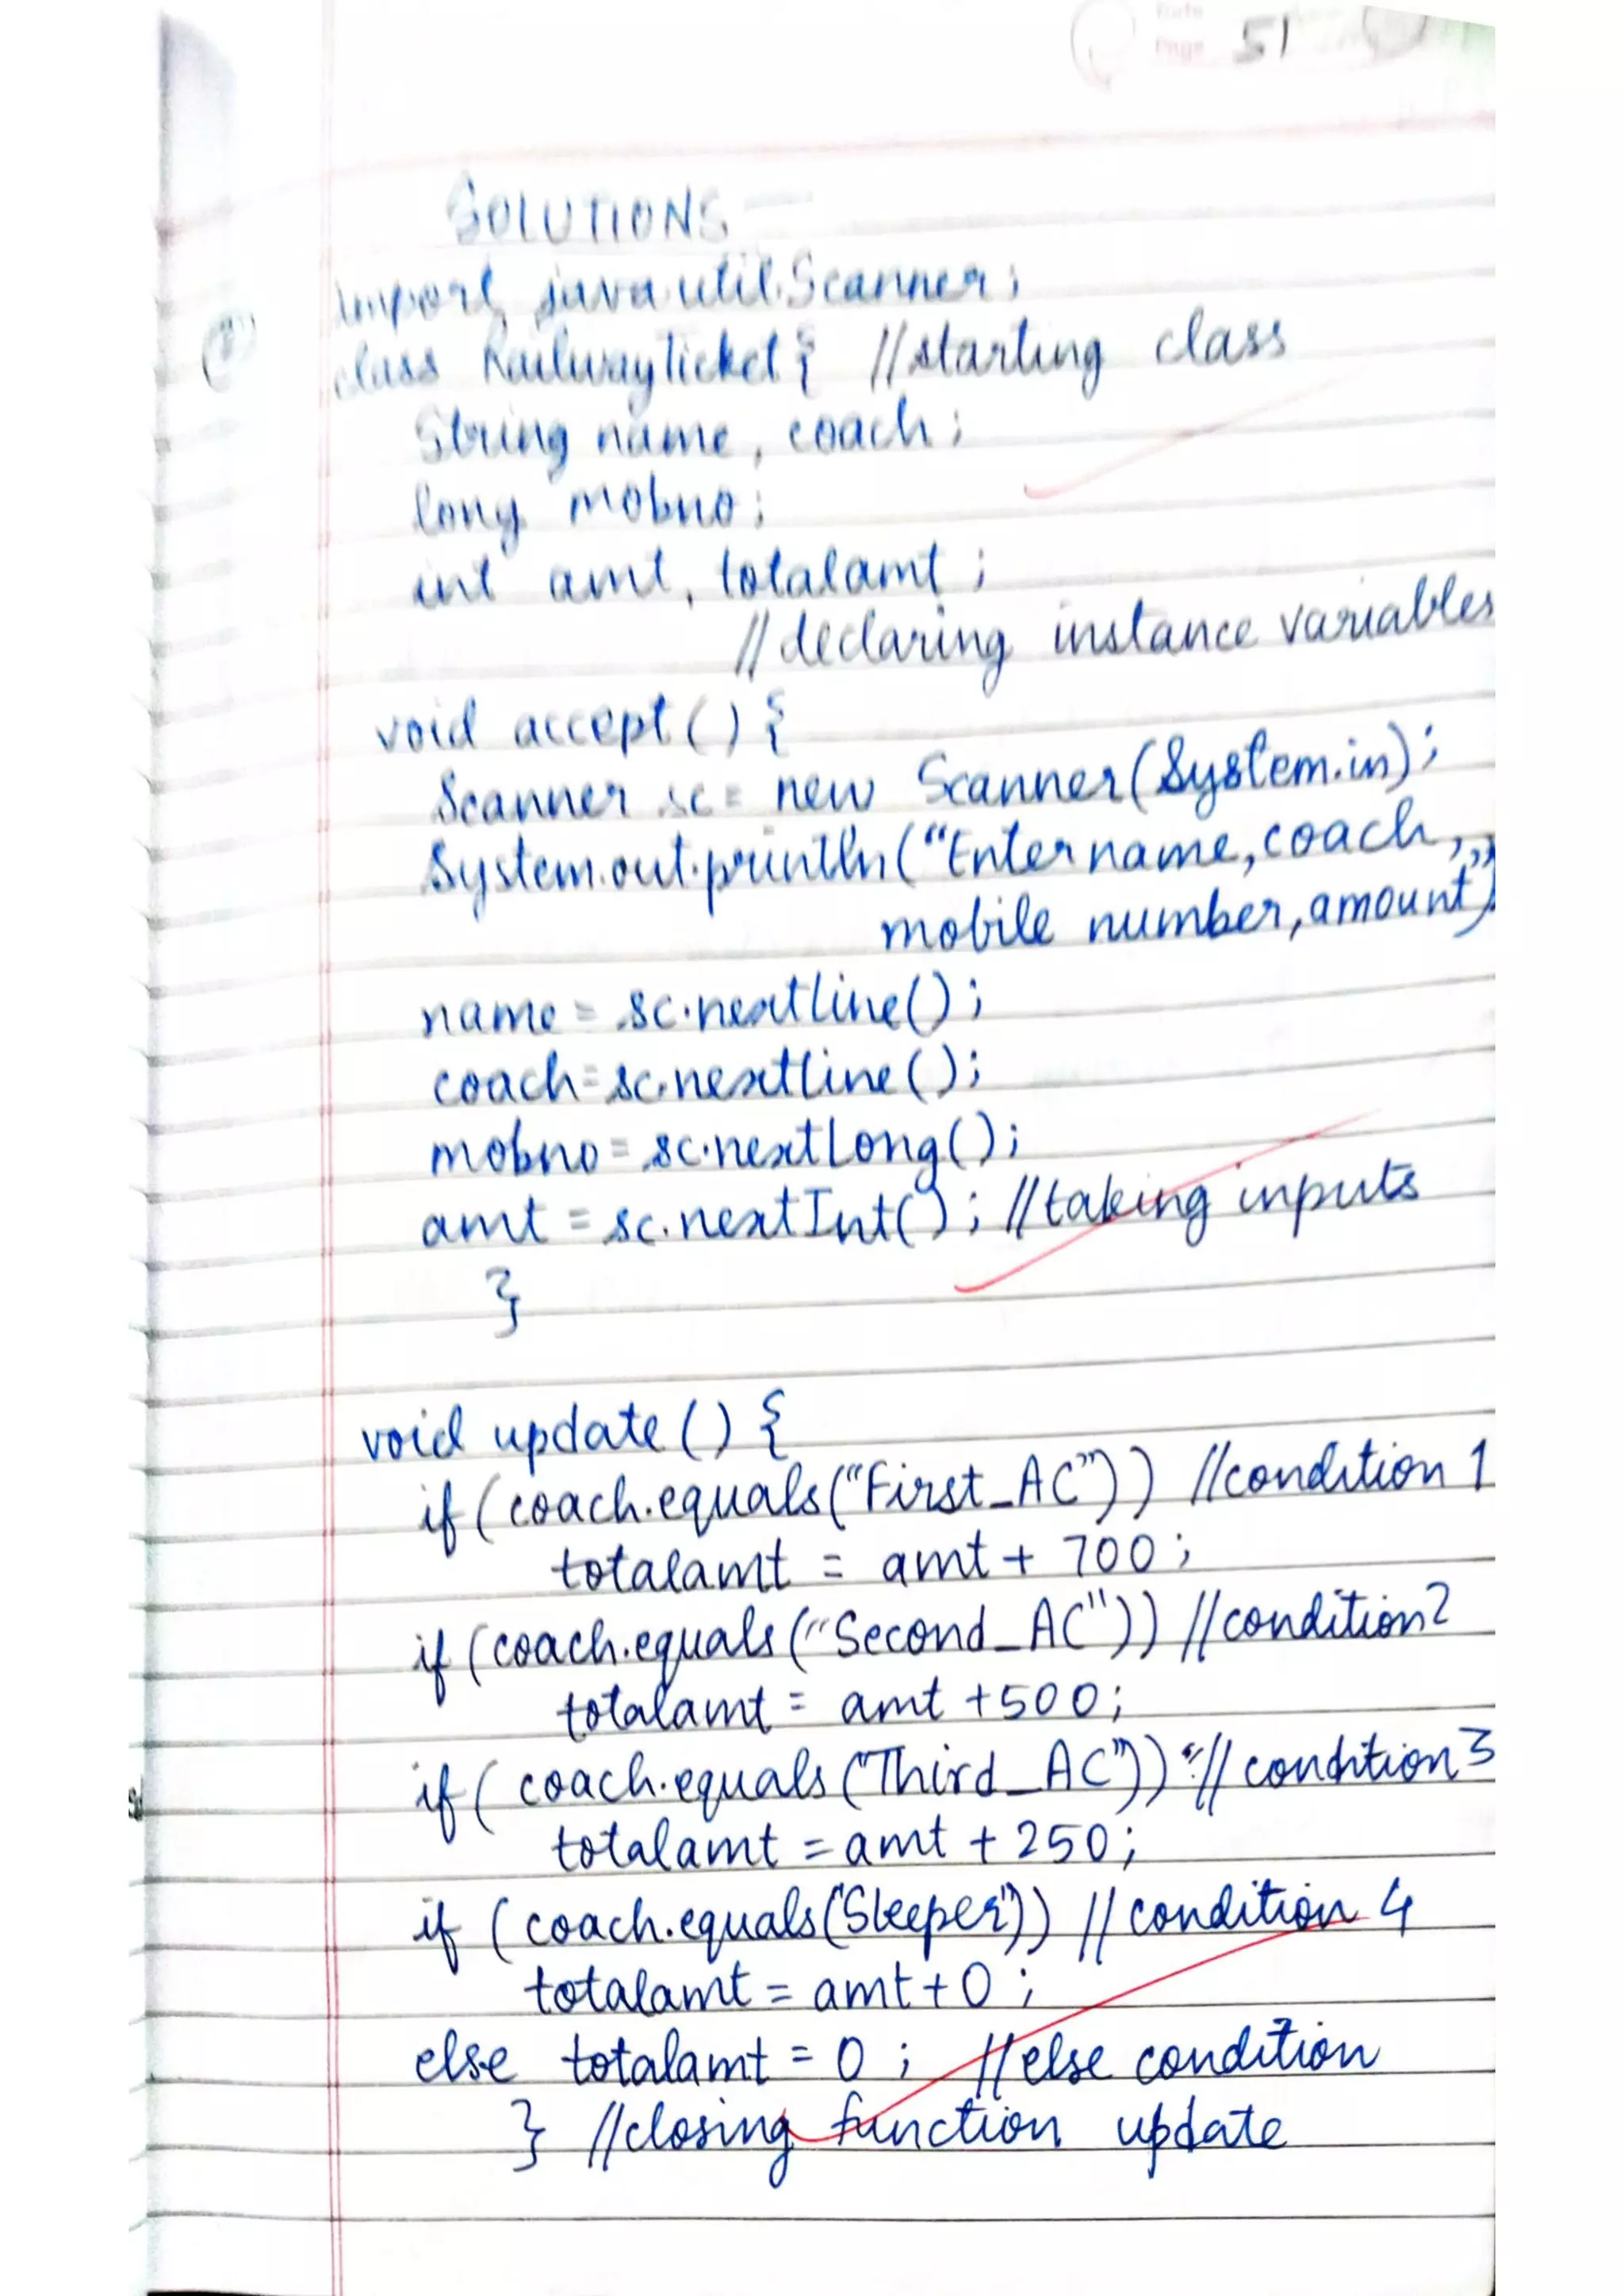 Page 51
SOLUTIONS —
import java.util.Scanner;
class RailwayTicket{ //starting class
String name, coach;
long mobno;
int amt, totalamt;
//declaring instance variables
void accept() {
Scanner sc= new Scanner(System.in);
System.out.println("Enter name, coach,
mobile number, amount")
name = sc.nextline();
coach=sc.nextline();
mobno=sc.nextLong();
amt = sc.nextInt(); //taking inputs
}
void update() {
if (coach.equals("First_AC")) //condition 1
totalamt = amt + 700;
if (coach.equals("Second_AC")) //condition2
totalamt = amt +500;
if (coach.equals("Third_AC")) // condition3
totalamt = amt + 250;
if (coach.equals("Sleeper")) // condition 4
totalamt = amt+0;
else totalamt = 0; //else condition
} //closing function update